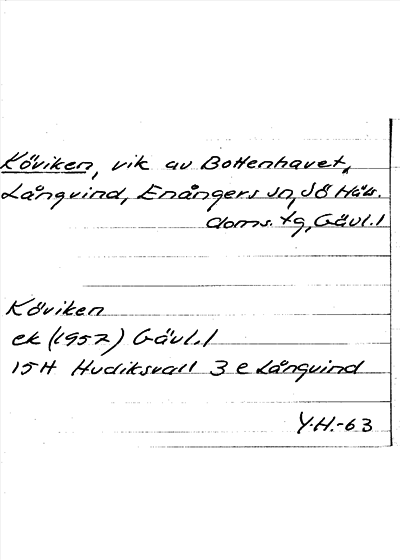 Köviken, vik av Bottenhavet,
Långvind, Enångers sn, SÖ Häls.
doms. tg, Gävl.l
Köviken
ek (1957) Gävl.l
15H Hudiksvall 3 e Långvind
Y.H.-63